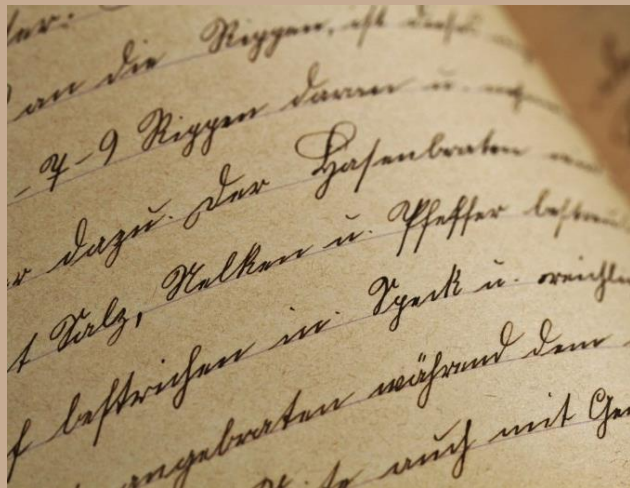 an die Rippen, ist diese
-7-9 Rippen daran u.
dazu. Der Hasenbraten
Salz, Nelken u. Pfeffer bestreu
bestrichen in. Speck u. reichli
angebraten während dem
auch mit Ge